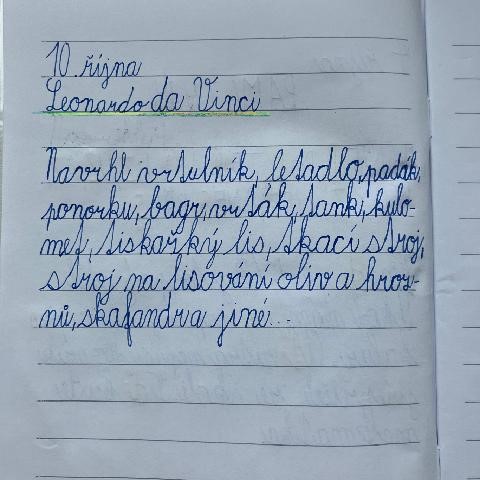 10. října
Leonardo da Vinci
Navrhl vrtulník, letadlo, padák,
ponorku, bagr, vrták, tank, kulo-
met, tiskařký lis, tkací stroj,
stroj na lisování oliv a hroz-
nů, skafandr a jiné...